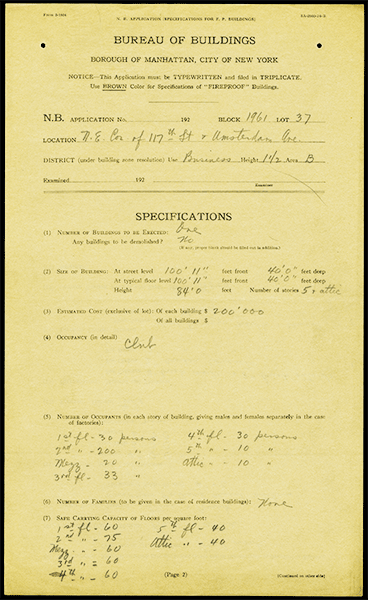 N. B. APPLICATION (SPECIFICATIONS FOR F. P. BUILDINGS)
BUREAU OF BUILDINGS
BOROUGH OF MANHATTAN, CITY OF NEW YORK
NOTICE—This Application must be TYPEWRITTEN and filed in TRIPLICATE.
Use BROWN Color for Specifications of "FIREPROOF" Buildings.
N.B. APPLICATION No. 192 BLOCK 1961 LOT 37
LOCATION N.E. Cor of 117th St & Amsterdam Ave.
DISTRICT (under building zone resolution) Use Business Height 1½ Area B
Examined 192
Examiner
SPECIFICATIONS
(1) NUMBER OF BUILDINGS TO BE ERECTED: One
Any buildings to be demolished? No
(2) SIZE OF BUILDING: At street level 100' 11" feet front 40'0" feet deep
At typical floor level 100' 11" feet front 40'0" feet deep
Height 84'0 feet Number of stories 5 & attic
(3) ESTIMATED COST (exclusive of lot): Of each building $ 200'000
Of all buildings $
(4) OCCUPANCY (in detail)
Club
(5) NUMBER OF OCCUPANTS (in each story of building, giving males and females separately in the case
of factories):
1st fl - 30 persons 4th fl. - 30 persons
2nd " - 200 " 5th " - 10 "
Mezz - 20 " Attic - - 10 "
3rd fl - 33 "
(6) NUMBER OF FAMILIES (to be given in case of residence buildings): None
(7) SAFE CARRYING CAPACITY OF FLOORS per square foot:
1st fl - 60 5th fl - 40
2nd " - 75 Attic " - 40
Mezz - - 60
3rd " = 60
4th " 60
(Page 2) (Continued on other side)